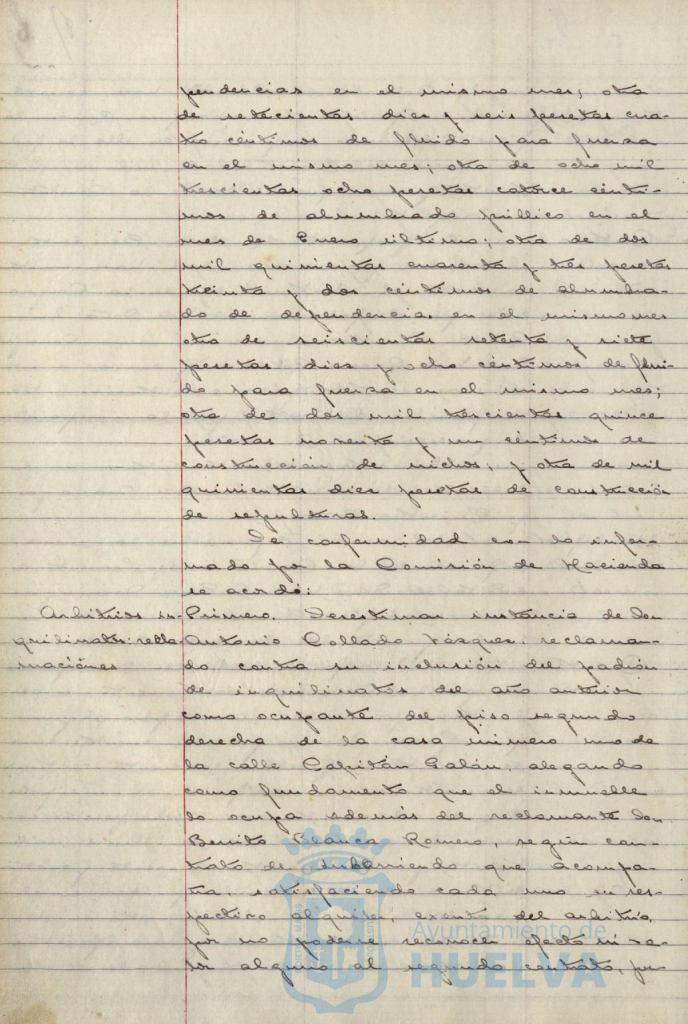 pendencias en el mismo mes; otra
de setecientas diez y seis pesetas cua-
tro céntimos de fluido para fuerza
en el mismo mes; otra de ocho mil
trescientas ocho pesetas catorce cénti-
mos de alumbrado público en el
mes de Enero último; otra de dos
mil quinientas cuarenta y tres pesetas
treinta y dos céntimos de alumbra-
do de dependencias en el mismo mes
otra de seiscientas setenta y siete
pesetas diez y ocho céntimos de flui-
do para fuerza en el mismo mes;
otra de dos mil trescientas quince
pesetas noventa y un céntimos de
construcción de nichos; y otra de mil
quinientas diez pesetas de construcción
de sepulturas.
De conformidad con lo infor-
mado por la Comisión de Hacienda
se acordó:
Arbitrios in-
quilinatos: recla-
maciones
Primero. Desestimar instancia de Don
Antonio Collado Vázquez, reclaman-
do contra su inclusión del padrón
de inquilinatos del año anterior
como ocupante del piso segundo
derecha de la casa número uno de
la calle Capitán Galán, alegando
como fundamento que el inmueble
lo ocupa además del reclamante Don
Benito Blanca Romero, según con-
trato de subarriendo que acompa-
ña, satisfaciendo cada uno su res-
pectivo alquiler, exento del arbitrio,
por no poderse reconocer efecto ni va-
lor alguno al segundo contrato, pu
Ayuntamiento de
HUELVA